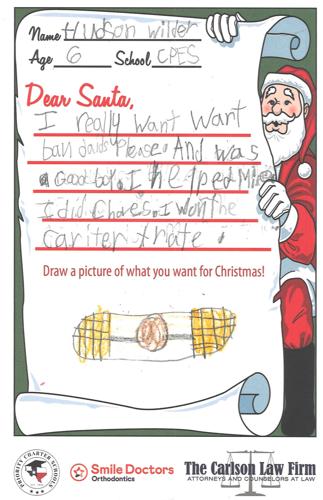 Name Hudson Wilder
Age 6 School CPES
Dear Santa,
I really want want
ban daids Please And was
a Good boy. I helped
I did Chores. I won the
cariter trate.
Draw a picture of what you want for Christmas!
PRIORITY CHARTER SCHOOLS
Smile Doctors
Orthodontics
The Carlson Law Firm
ATTORNEYS AND COUNSELORS AT LAW